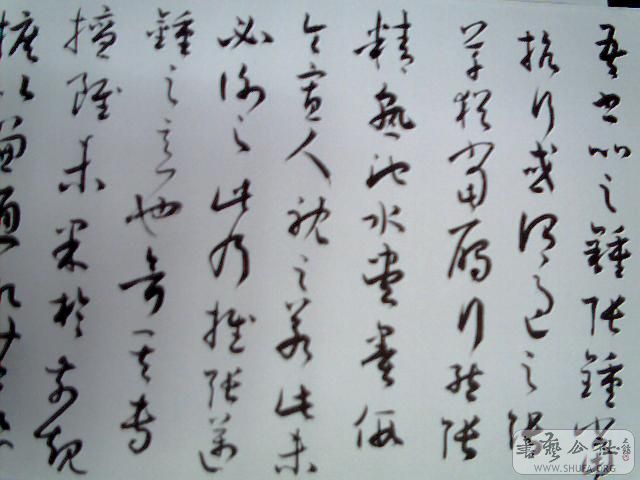 吾書比之鍾張鍾當
抗行或謂過之張
草猶當鴈行然張
精熟池水盡墨假
令寡人耽之若此未
必謝之此乃推張邁
鍾之意也考其專
擅雖未果於前規
摭以兼通故
書藝公社
WWW.SHUFA.ORG